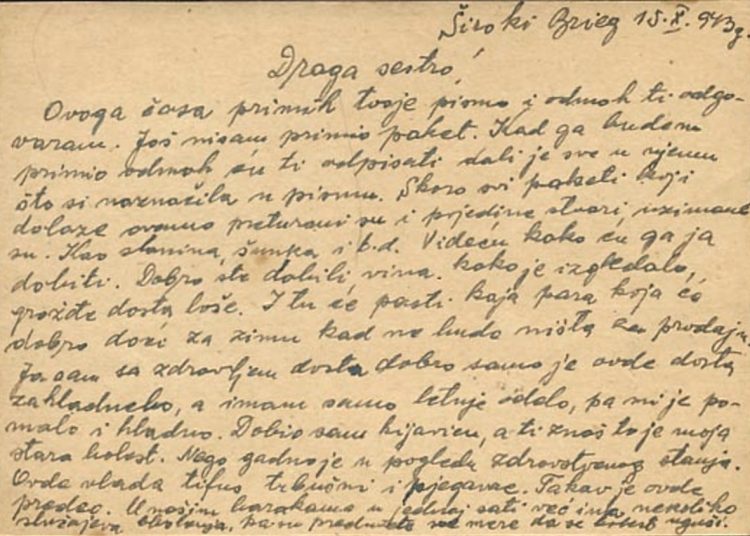 Široki Brieg 15.X.943g.
Draga sestro!
Ovoga časa primih tvoje pismo i odmah ti odgo-
varam. Još nisam primio paket. Kad ga budem
primio odmah ću ti odpisati dali je sve u njemu
što si naznačila u pismu. Skoro svi paketi koji
dolaze ovamo preturani su i pojedine stvari uzimane
su. Kao slanina, šunka i t.d. Videću kako ću ga ja
dobiti. Dobro ste dobili vina. kako je izgledalo,
grožđe dosta loše. I tu će pasti koja para koja će
dobro doći za zimu kad ne bude ništa za prodaju.
Ja sam sa zdravljem dosta dobro samo je ovde dosta
zahladnelo, a imam samo letnje odelo, pa mi je po-
malo i hladno. Dobio sam kijavicu, a ti znaš to je moja
stara bolest. Nego gadno je u pogledu zdravstvenog stanja.
Ovde vlada tifus trbušni i pjegavac. Takav je ovde
predeo. U našim barakama u jednoj sati već ima nekoliko
slučajeva oboljenja, pa su preduzete sve mere da se bolest uguši.